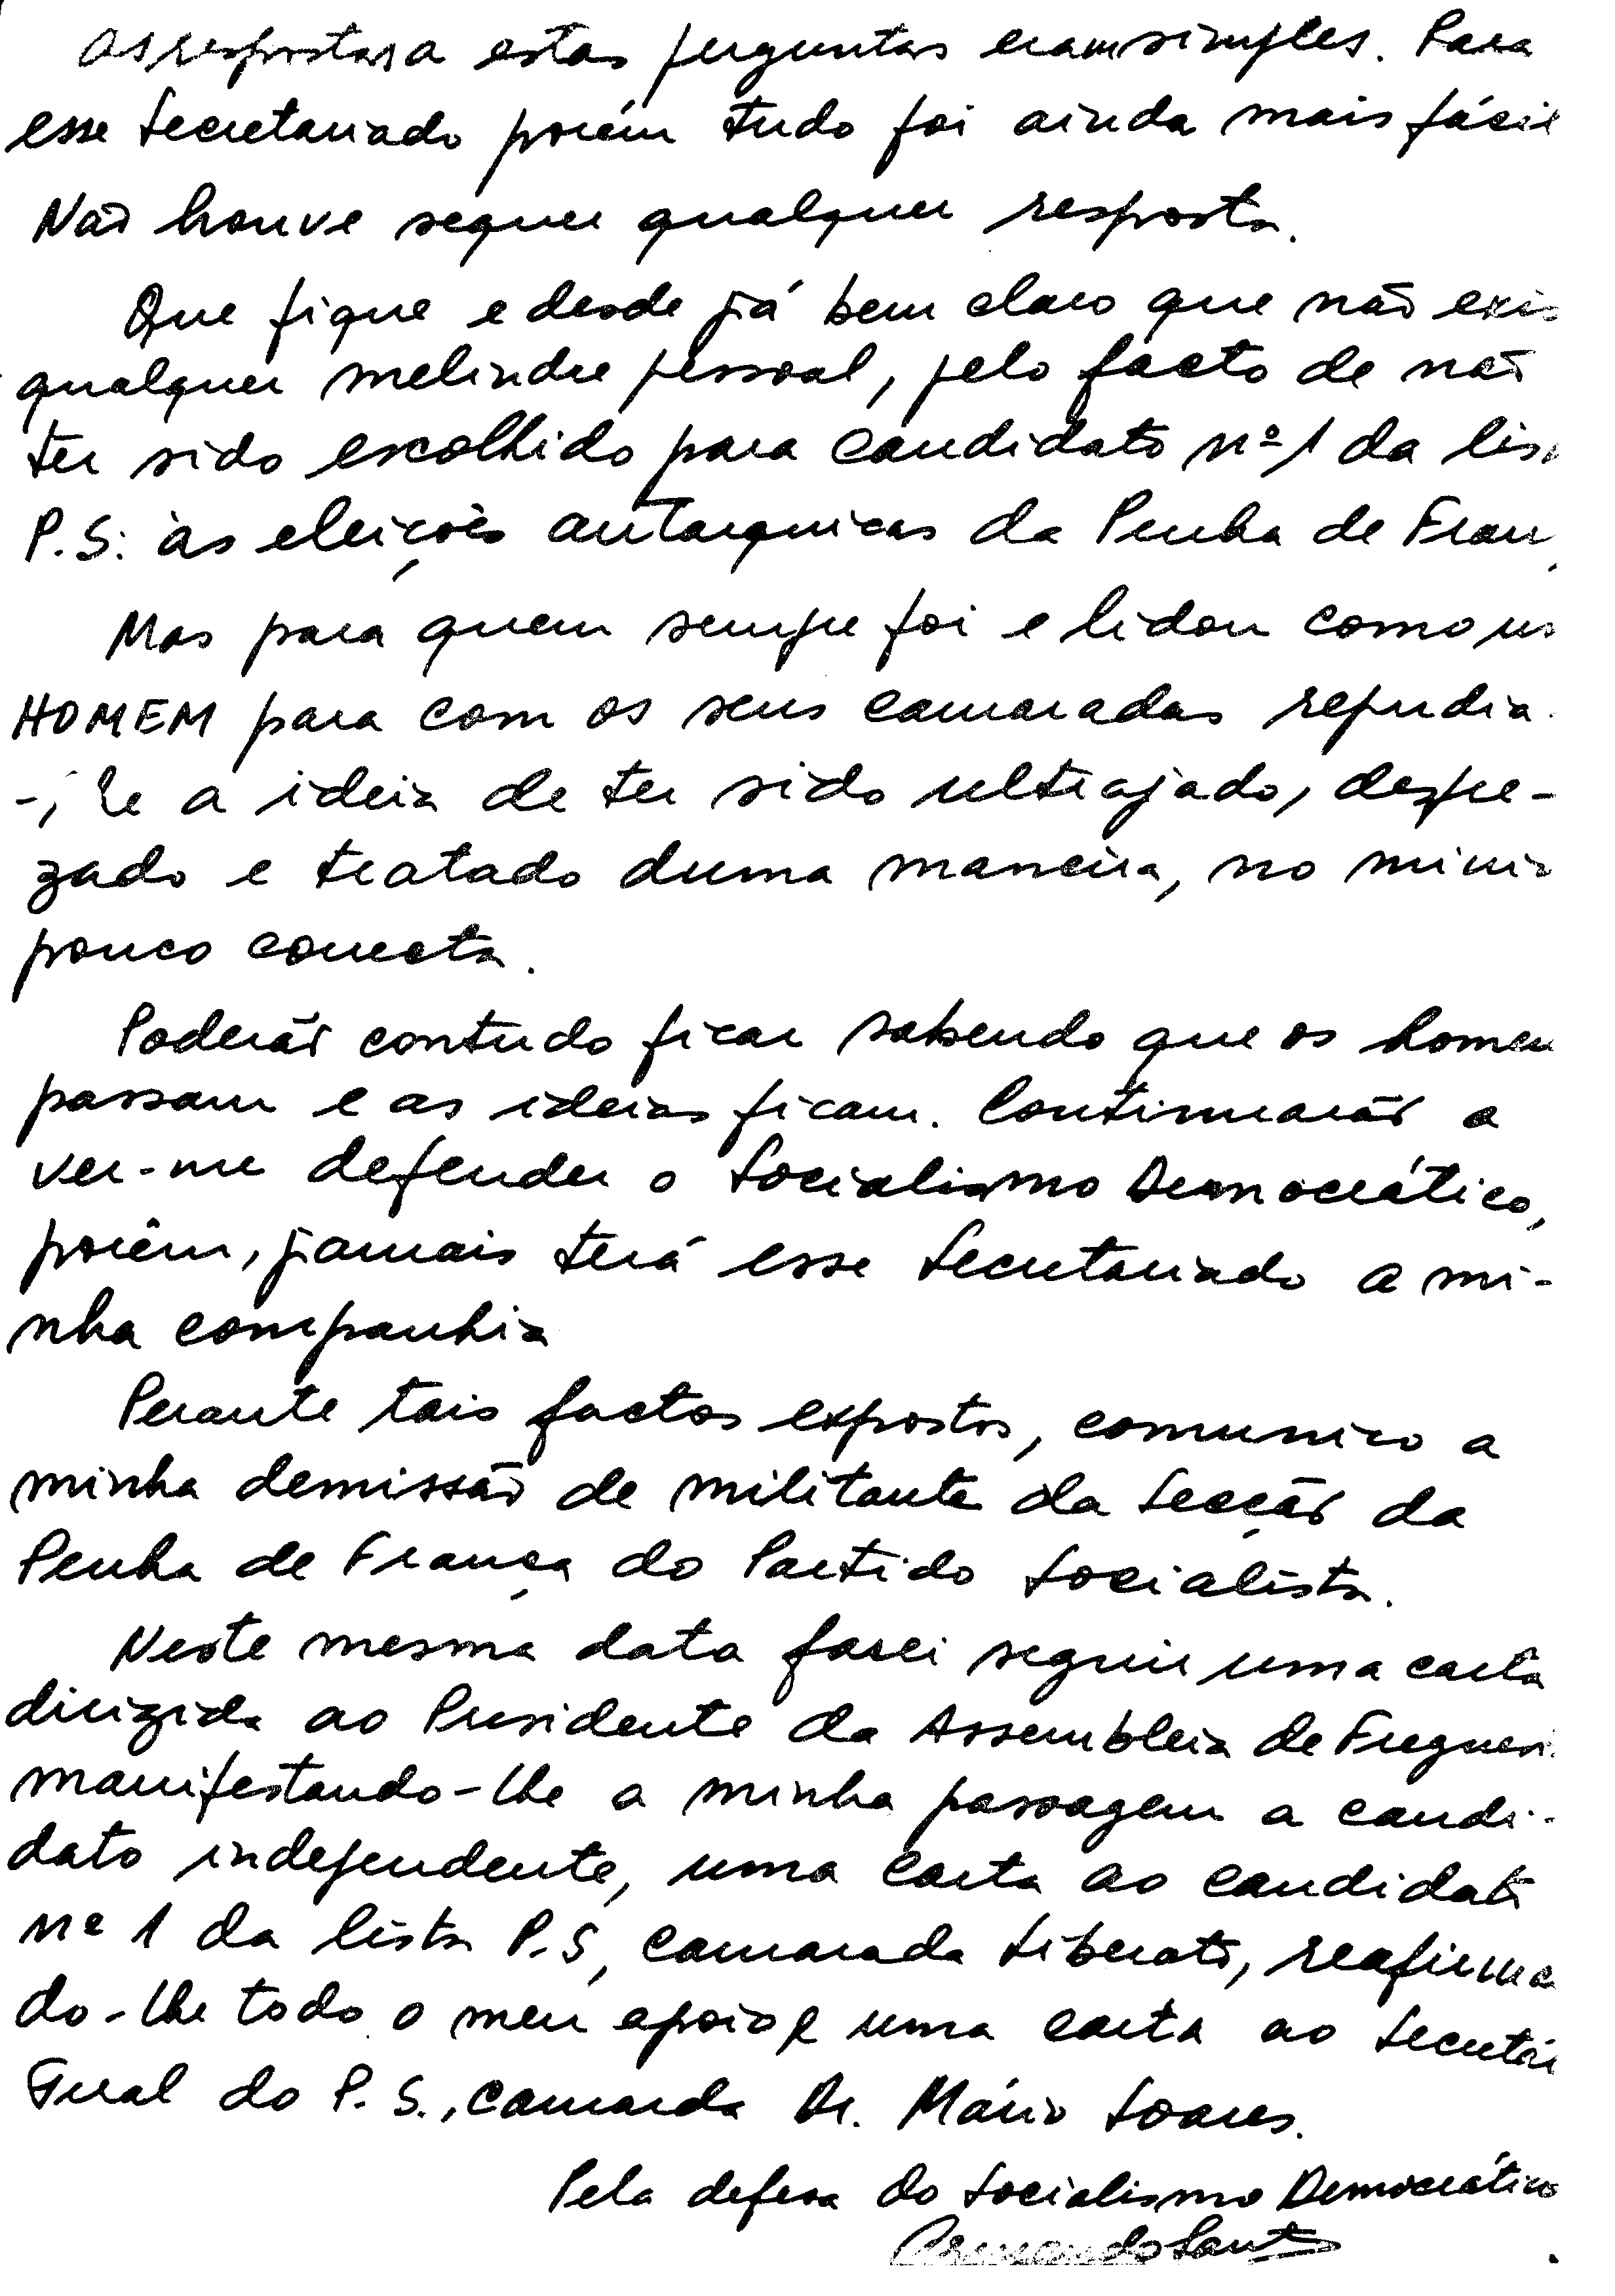 As respostas a estas perguntas eram simples. Para
esse Secretariado porém tudo foi ainda mais fácil
Não houve sequer qualquer resposta.
Que fique e desde já bem claro que não exis
qualquer melindre pessoal, pelo facto de não
ter sido escolhido para candidato nº 1 da lis
P.S. às eleições autarquicas da Penha de Fran
Mas para quem sempre foi e lidou como
HOMEM para com os seus camaradas repudia
-lhe a ideia de ter sido ultrajado, despre-
zado e tratado duma maneira, no minim
pouco correcta.
Poderão contudo ficar sabendo que os homen
passam e as ideias ficam. Continuarão a
ver-me defender o Socialismo Democrático,
porêm, jamais terá esse Secretariado a mi-
nha companhia
Perante tais factos expostos, comunico a
minha demissão de militante da Secção da
Penha de França do Partido Socialista.
Neste mesma data farei seguir uma carta
dirigida ao Presidente da Assembleia de Freguesi
manifestando-lhe a minha passagem a candi-
dato independente, uma carta ao candidato
nº 1 da lista P.S, camarada Liberato, reafirma
do-lhe todo o meu apoio e uma carta ao Secretári
Geral do P.S., camarda Dr. Mário Soares.
Pela defesa do Socialismo Democrático
Armando Sant